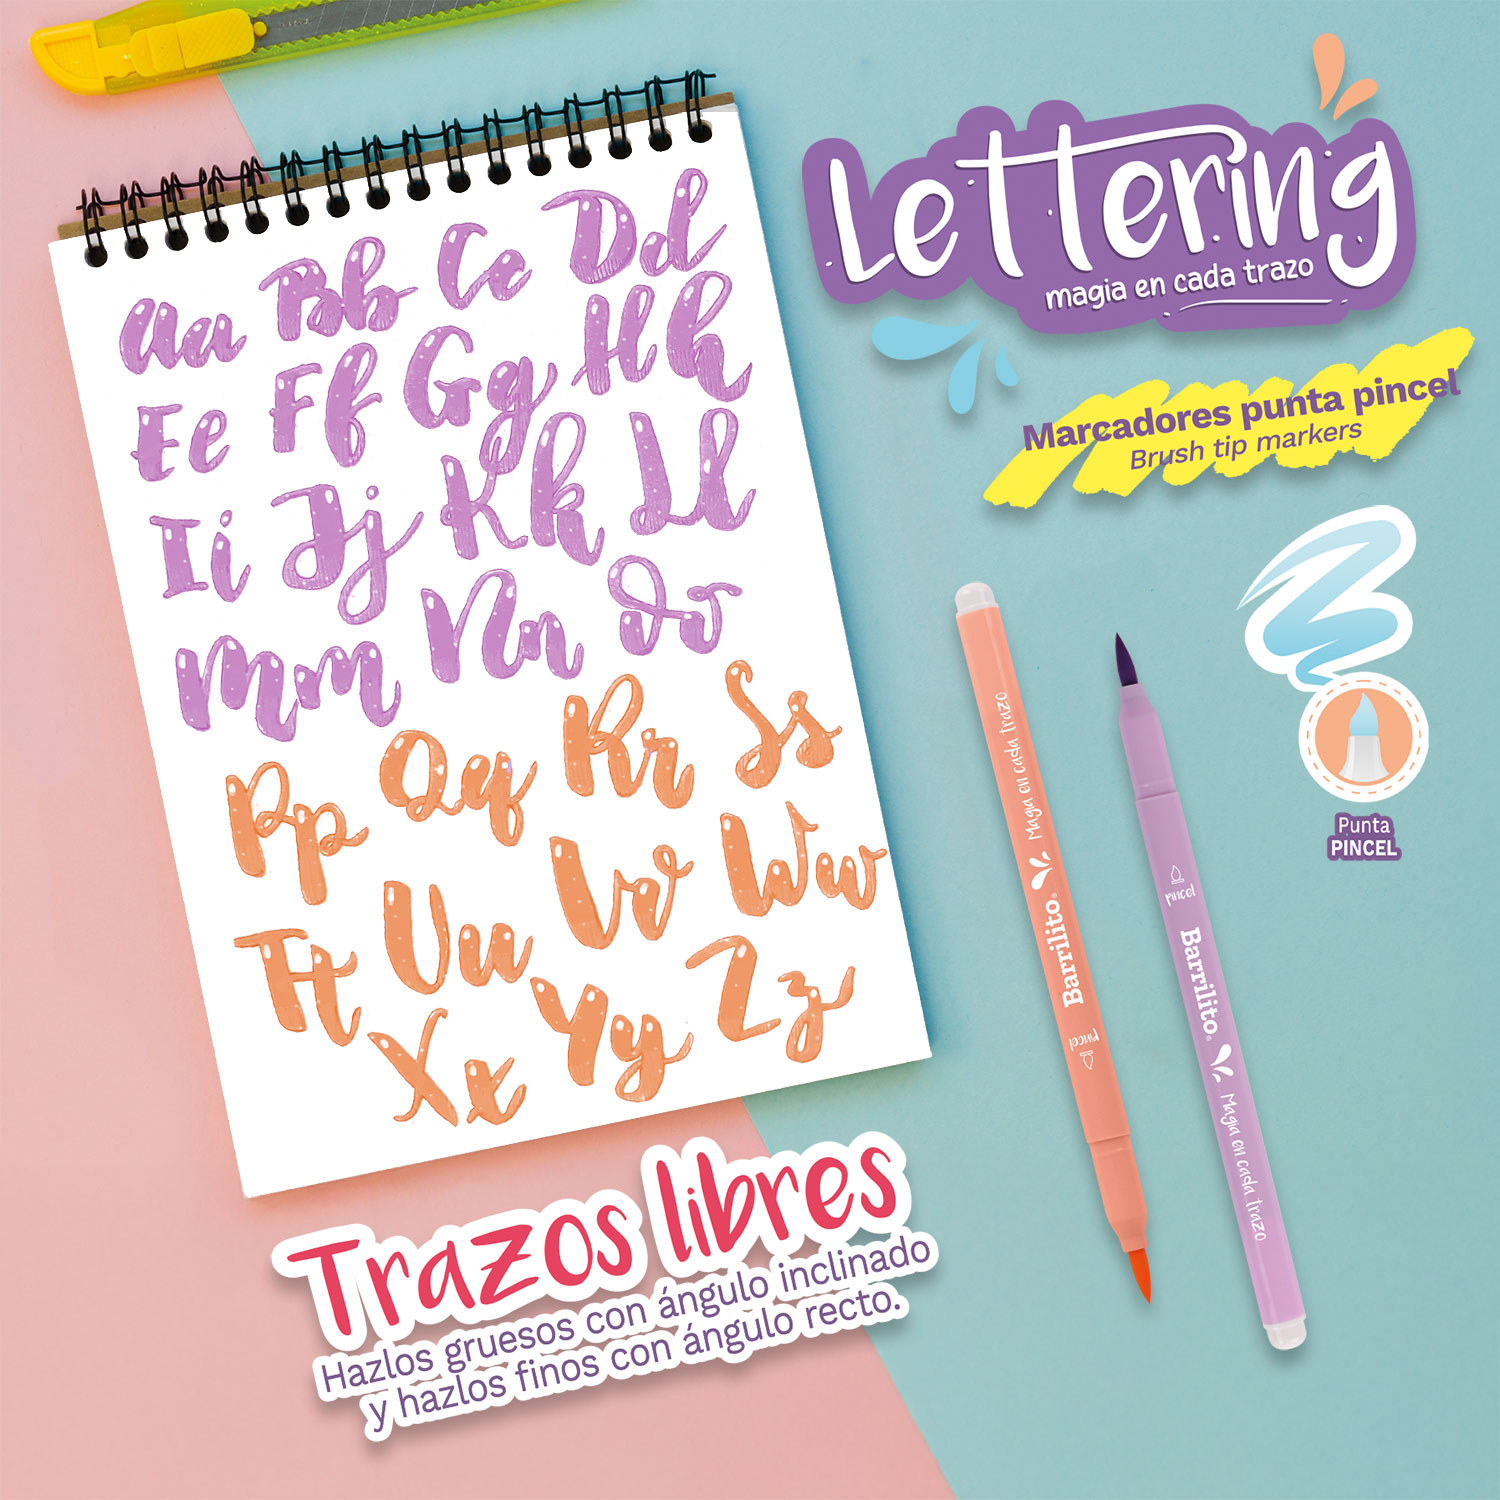 Lettering
magia en cada trazo
Marcadores punta pincel
Brush tip markers
Aa Bb Cc Dd
Ee Ff Gg Hh
Ii Jj Kk Ll
Mm Nn Oo
Pp Qq Rr Ss
Tt Uu Vv Ww
Xx Yy Zz
Punta
PINCEL
pincel Barrilito® Magia en cada trazo
pincel Barrilito® Magia en cada trazo
Trazos libres
Hazlos gruesos con ángulo inclinado
y hazlos finos con ángulo recto.